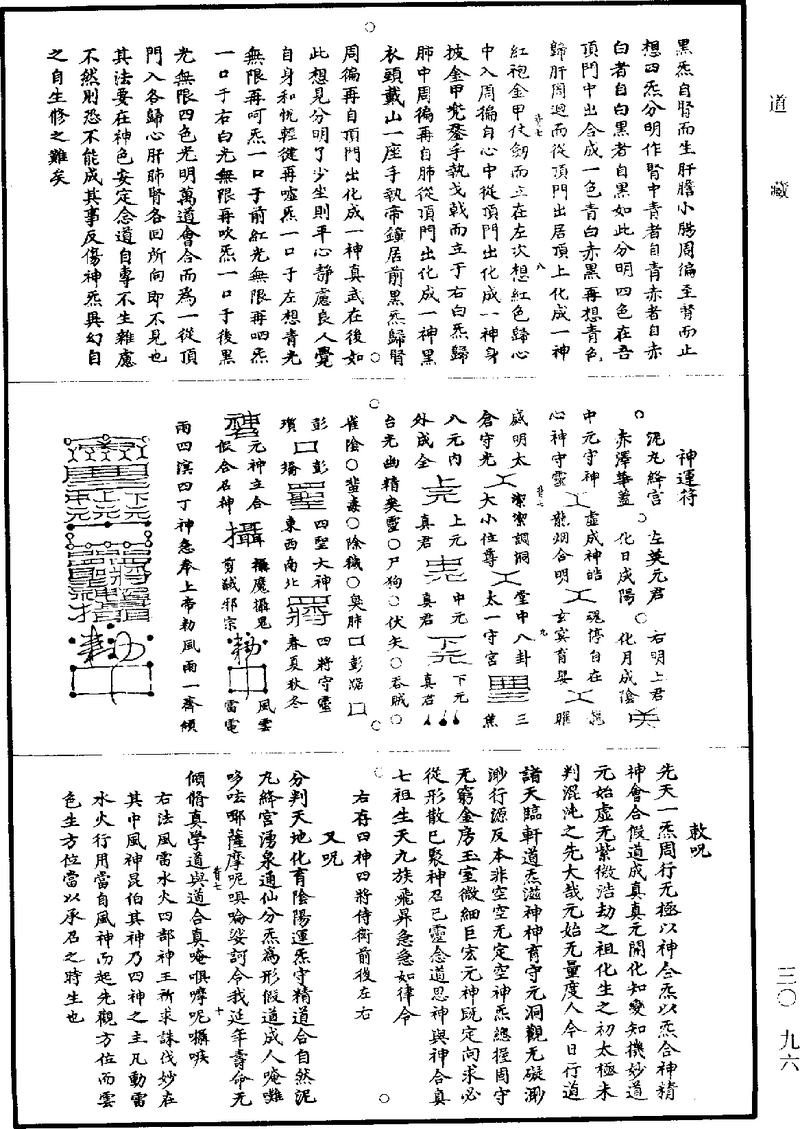 道藏
三〇 九六
黑炁自腎而生肝膽小腸周徧至腎而止
想四炁分明作腎中青者自青赤者自赤
白者自白黑者自黑如此分明四色在吾
頂門中出合成一色青白赤黑再想青色
歸肝周迴而從頂門出居頂上化成一神
紅袍金甲仗劒而立在左次想紅色歸心
中入周徧自心中從頂門出化成一神身
披金甲兜鍪手執戈戟而立于右白炁歸
肺中周徧再自肺從頂門出化成一神黑
衣頭戴山一座手執帝鐘居前黑炁歸腎
周徧再自頂門出化成一神真武在後如
此想見分明了少坐則平心靜慮良久覺
自身和悅輕健再噓炁一口于左想青光
無限再呵炁一口于前紅光無限再呬炁
一口于右白光無限再吹炁一口于後黑
光無限四色光明萬道會合而為一從頂
門入各歸心肝肺腎各回所向即不見也
其法要在神色安定念道自專不生雜慮
不然則恐不能成其事反傷神炁與幻自
之自生修之難矣
神運符
泥丸絳宮 左英元君 右明上君
赤澤華蓋 化日成陽 化月成陰
中元守神 虛成神皓 魂停自在
心神守靈 龍烟合明 玄冥育嬰
威明太 潔潔調洞 堂中八卦
倉守光 大小位尊 太一守宮 三焦
八元內 上元 上元 中元 下元
外成全 真君 真君 下元 真君
台光幽精爽靈〇尸狗〇伏矢〇吞賊〇
雀陰〇蜚毒〇除穢〇臭肺 彭琚
彭 彭 四聖大神 四將守靈
瓆 撟 東西南北 春夏秋冬
元神立合 攝 攝魔攝鬼 風雲
假合名神 剪馘邪宗 雷電
雨四溟四丁神急奉上帝勑風雨一齊傾
敕呪
先天一炁周行无極以神合炁以炁合神精
神會合假道成真真元開化知變知機妙道
元始虛无紫微浩劫之祖化生之初太極未
判混沌之先大哉元始无量度人今日行道
諸天臨軒道炁滋神神育守元洞觀无礙渺
渺行源反本非空空无定空神炁總握固守
无窮金房玉室微細巨宏元神既定向求必
從形散已聚神召已靈念道思神與神合真
七祖生天九族飛昇急急如律令
右存四神四將侍衛前後左右
又呪
分判天地化育陰陽運炁守精道合自然泥
九絳宮湧泉通仙分炁為形假道成人唵囄
哆呿哪薩摩呢唄喻娑訶令我延年壽命无
傾脩真學道與道合真唵唄嚤呢囁㗋
右法風雷水火四部神王所求誅伐妙在
其中風神昆伯其神乃四神之主凡動雷
水火行用當自風神而起先觀方位而雲
色生方位當以承召之時生也